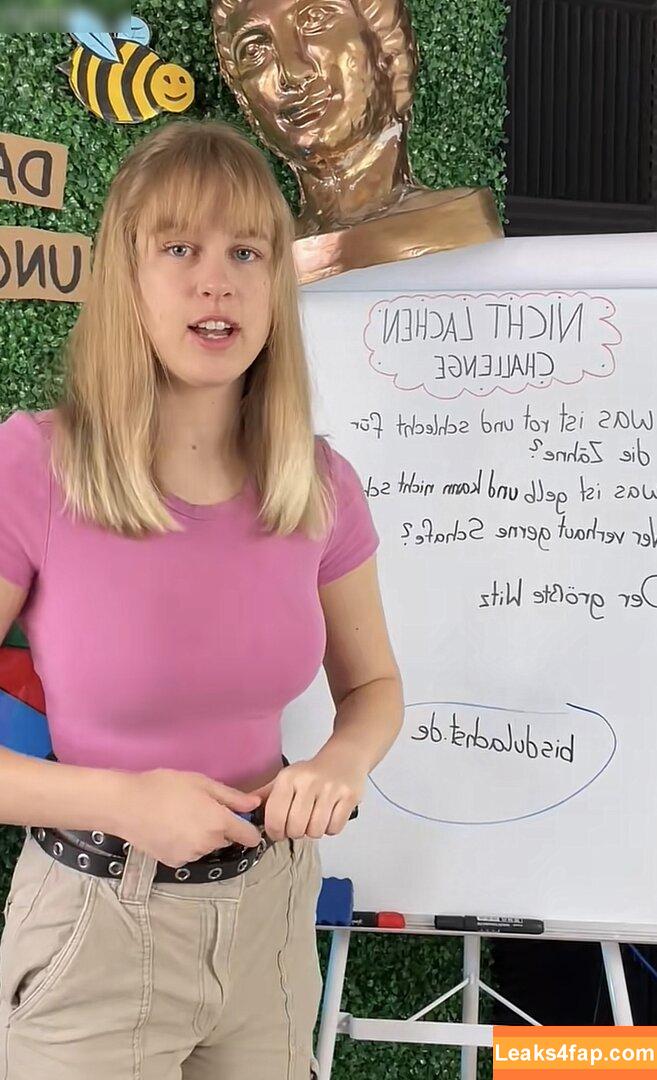 DA
UNC
NICHT LACHEN
CHALLENGE
was ist rot und schlecht für
die Zähne?
was ist gelb und kann nicht sch
Wer verhaut gerne Schafe?
Der größte Witz
bisdulachst.de
Leaks4fap.com